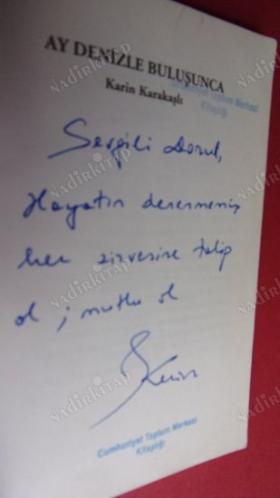 AY DENİZLE BULUŞUNCA
Karin Karakaşlı
Cumhuriyet Toplum Merkezi
Kitaplığı
Sevgili Dorul,
Hayatın denenmemiş
her zirvesine talip
ol ; mutlu ol
Karin
Cumhuriyet Toplum Merkezi
Kitaplığı
NADİRKİTAP